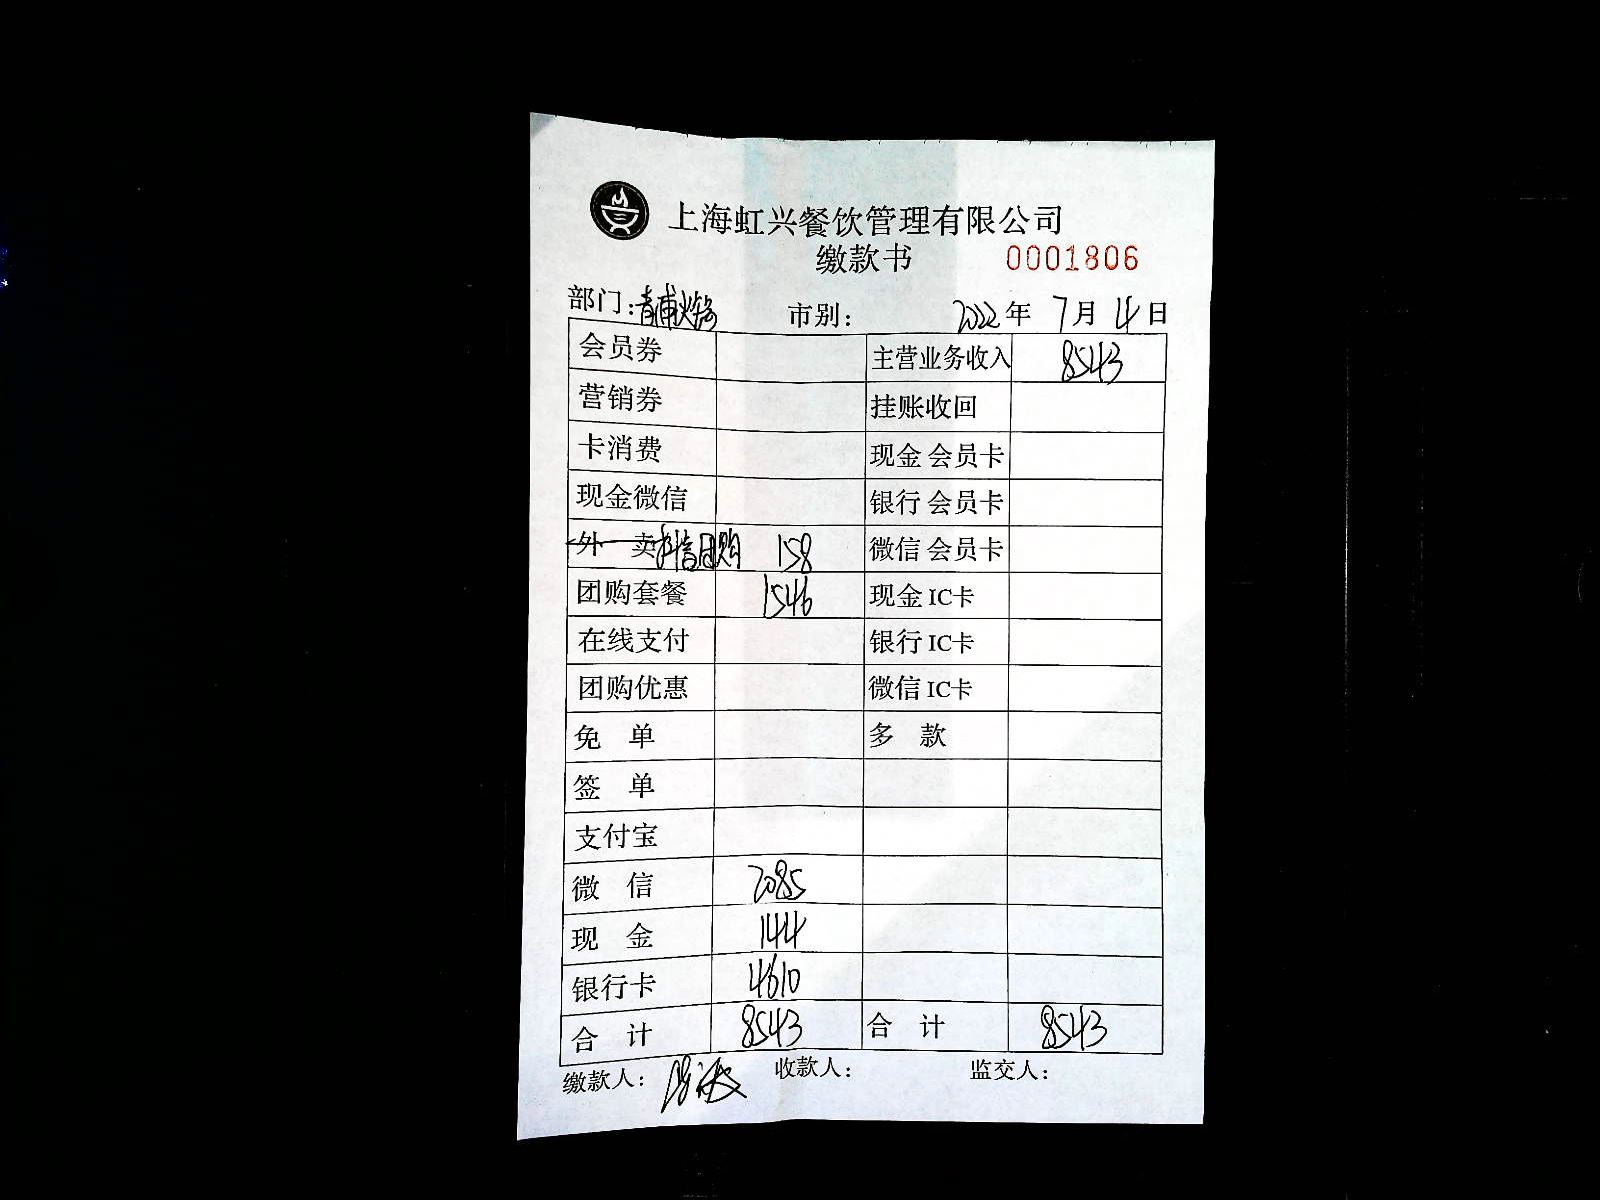 上海虹兴餐饮管理有限公司
缴款书 0001806
部门：青浦火锅 市别： 2022年 7月 14日
会员券 主营业务收入 8543
营销券 挂账收回
卡消费 现金 会员卡
现金微信 银行 会员卡
外 卖 抖音团购 158 微信 会员卡
团购套餐 1546 现金 IC卡
在线支付 银行 IC卡
团购优惠 微信 IC卡
免 单 多 款
签 单
支付宝
微 信 2085
现 金 144
银行卡 4610
合 计 8543 合 计 8543
缴款人： 收款人： 监交人：